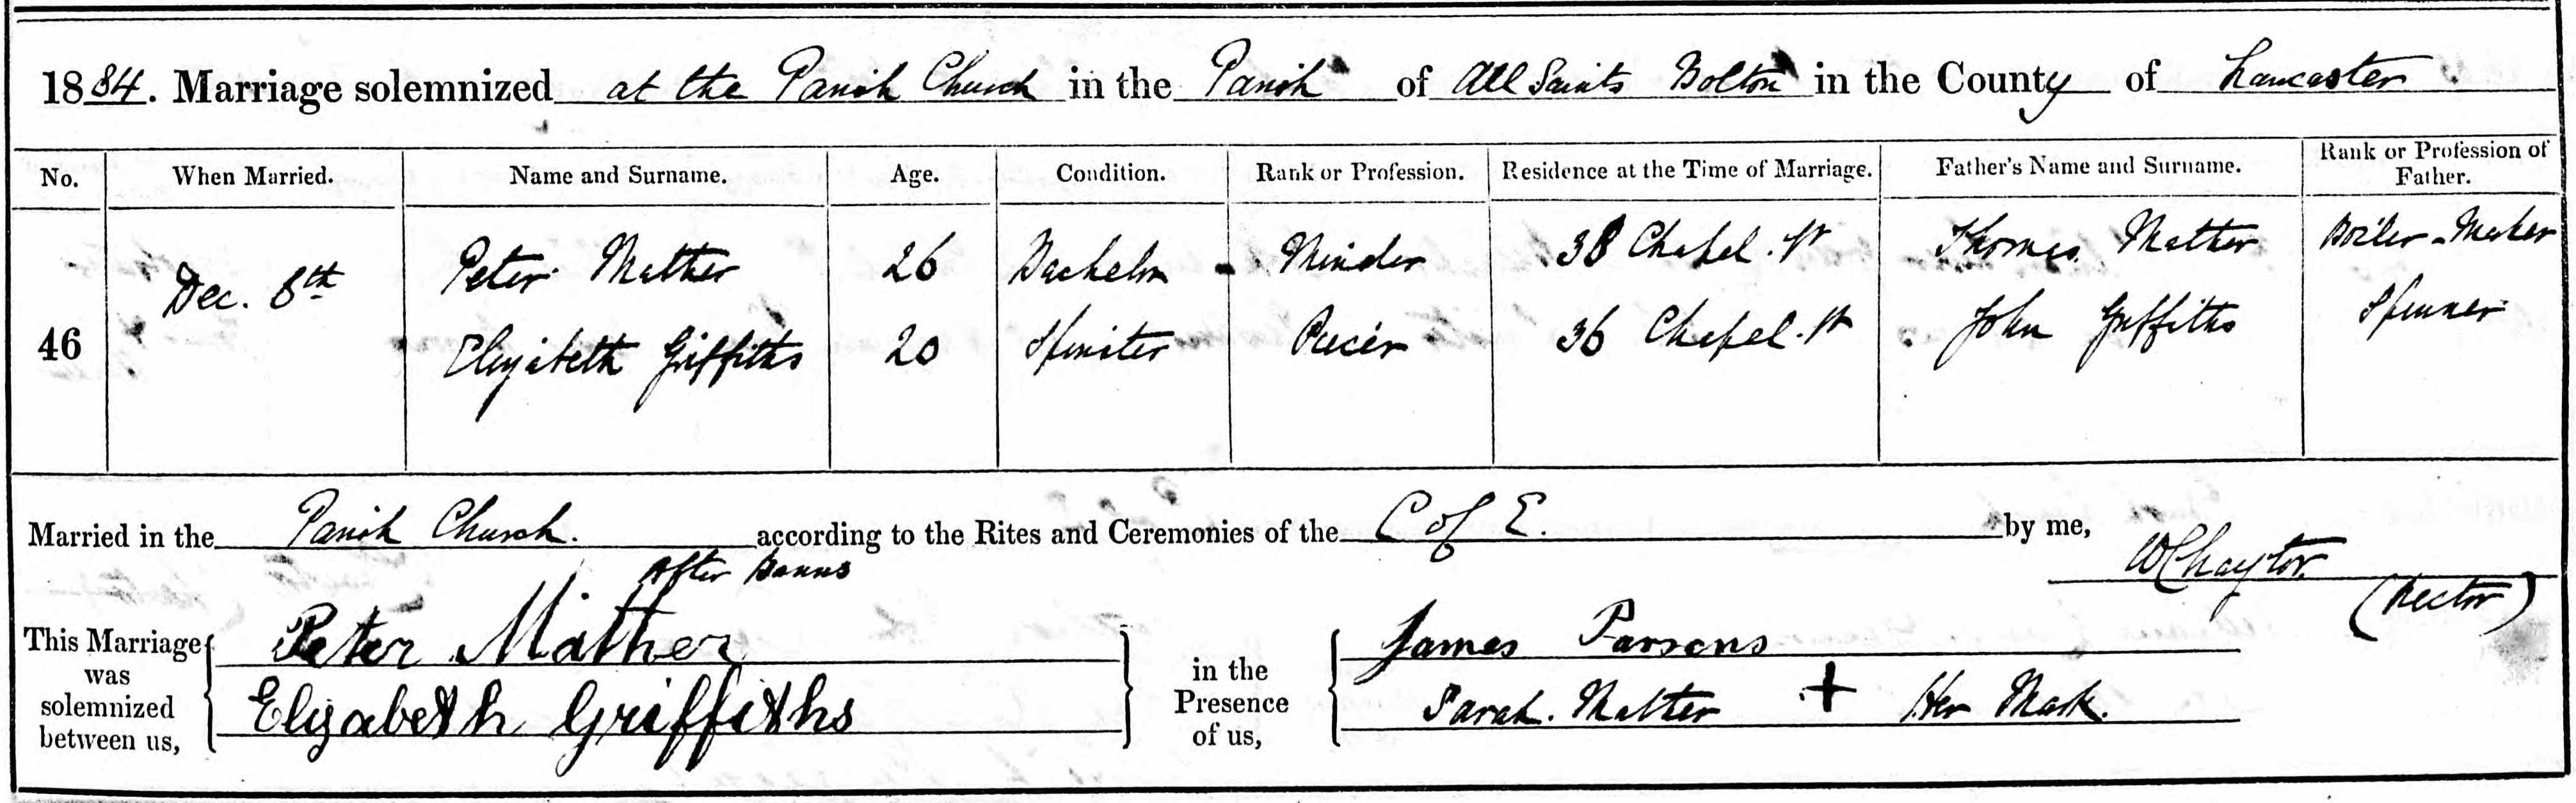 1884. Marriage solemnized at the Parish Church in the Parish of All Saints Bolton in the County of Lancaster
No. When Married. Name and Surname. Age. Condition. Rank or Profession. Residence at the Time of Marriage. Father's Name and Surname. Rank or Profession of Father.
46 Dec. 8th
Peter Mather 26 Bachelor Minder 38 Chapel. St Thomas Mather Boiler-Maker
Elizabeth Griffiths 20 Spinster Piecer 36 Chapel. St John Griffiths Spinner
Married in the Parish Church. according to the Rites and Ceremonies of the C of E. by me,
After Banns
W Chaytor
(Rector)
This Marriage was solemnized between us,
Peter Mather
Elizabeth Griffiths
in the Presence of us,
James Parsons
Sarah. Mather + Her Mark.